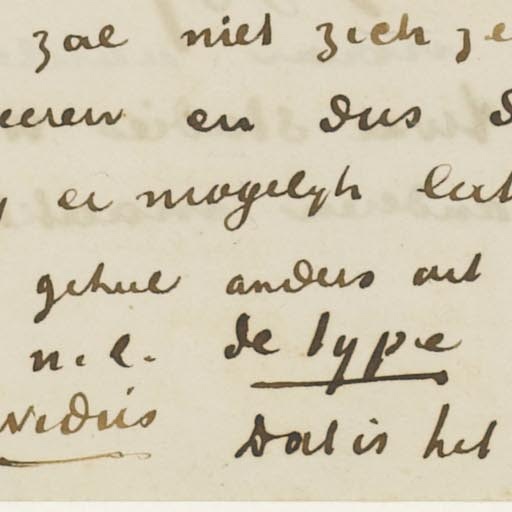 zal niet zich ze
eeren en dus d
er mogelijk
geheel anders uit
n.l. de type
Dat is het